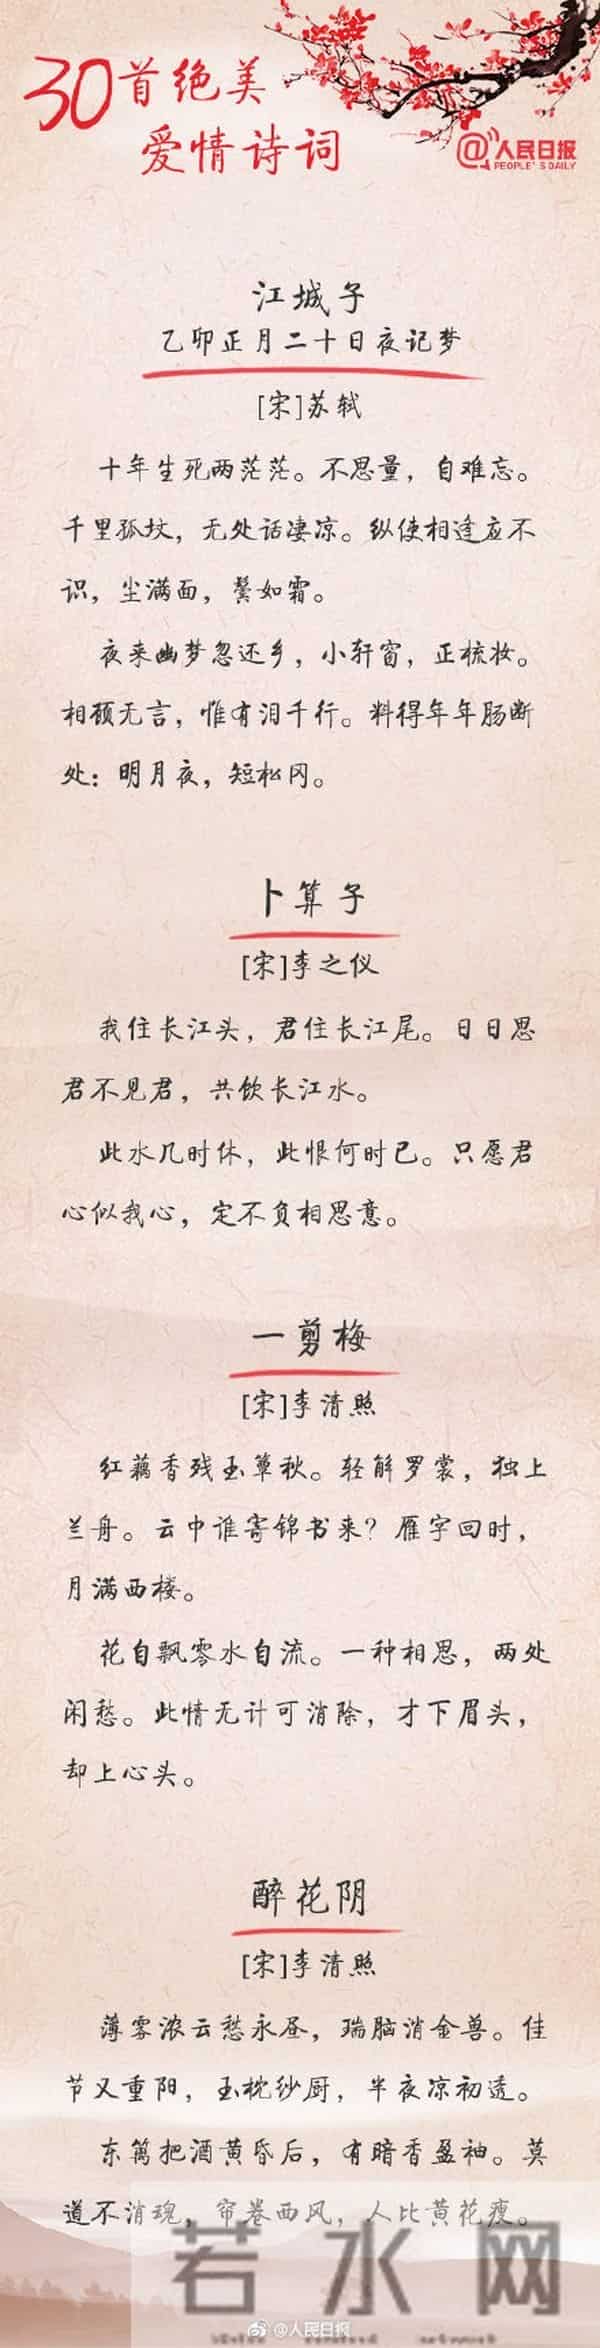 30首绝美
爱情诗词
@人民日报
PEOPLE'S DAILY
江城子
乙卯正月二十日夜记梦
[宋]苏轼
十年生死两茫茫。不思量，自难忘。
千里孤坟，无处话凄凉。纵使相逢应不
识，尘满面，鬓如霜。
夜来幽梦忽还乡，小轩窗，正梳妆。
相顾无言，惟有泪千行。料得年年肠断
处：明月夜，短松冈。
卜算子
[宋]李之仪
我住长江头，君住长江尾。日日思
君不见君，共饮长江水。
此水几时休，此恨何时已。只愿君
心似我心，定不负相思意。
一剪梅
[宋]李清照
红藕香残玉簟秋。轻解罗裳，独上
兰舟。云中谁寄锦书来？雁字回时，
月满西楼。
花自飘零水自流。一种相思，两处
闲愁。此情无计可消除，才下眉头，
却上心头。
醉花阴
[宋]李清照
薄雾浓云愁永昼，瑞脑消金兽。佳
节又重阳，玉枕纱厨，半夜凉初透。
东篱把酒黄昏后，有暗香盈袖。莫
道不消魂，帘卷西风，人比黄花瘦。
若水网
@人民日报